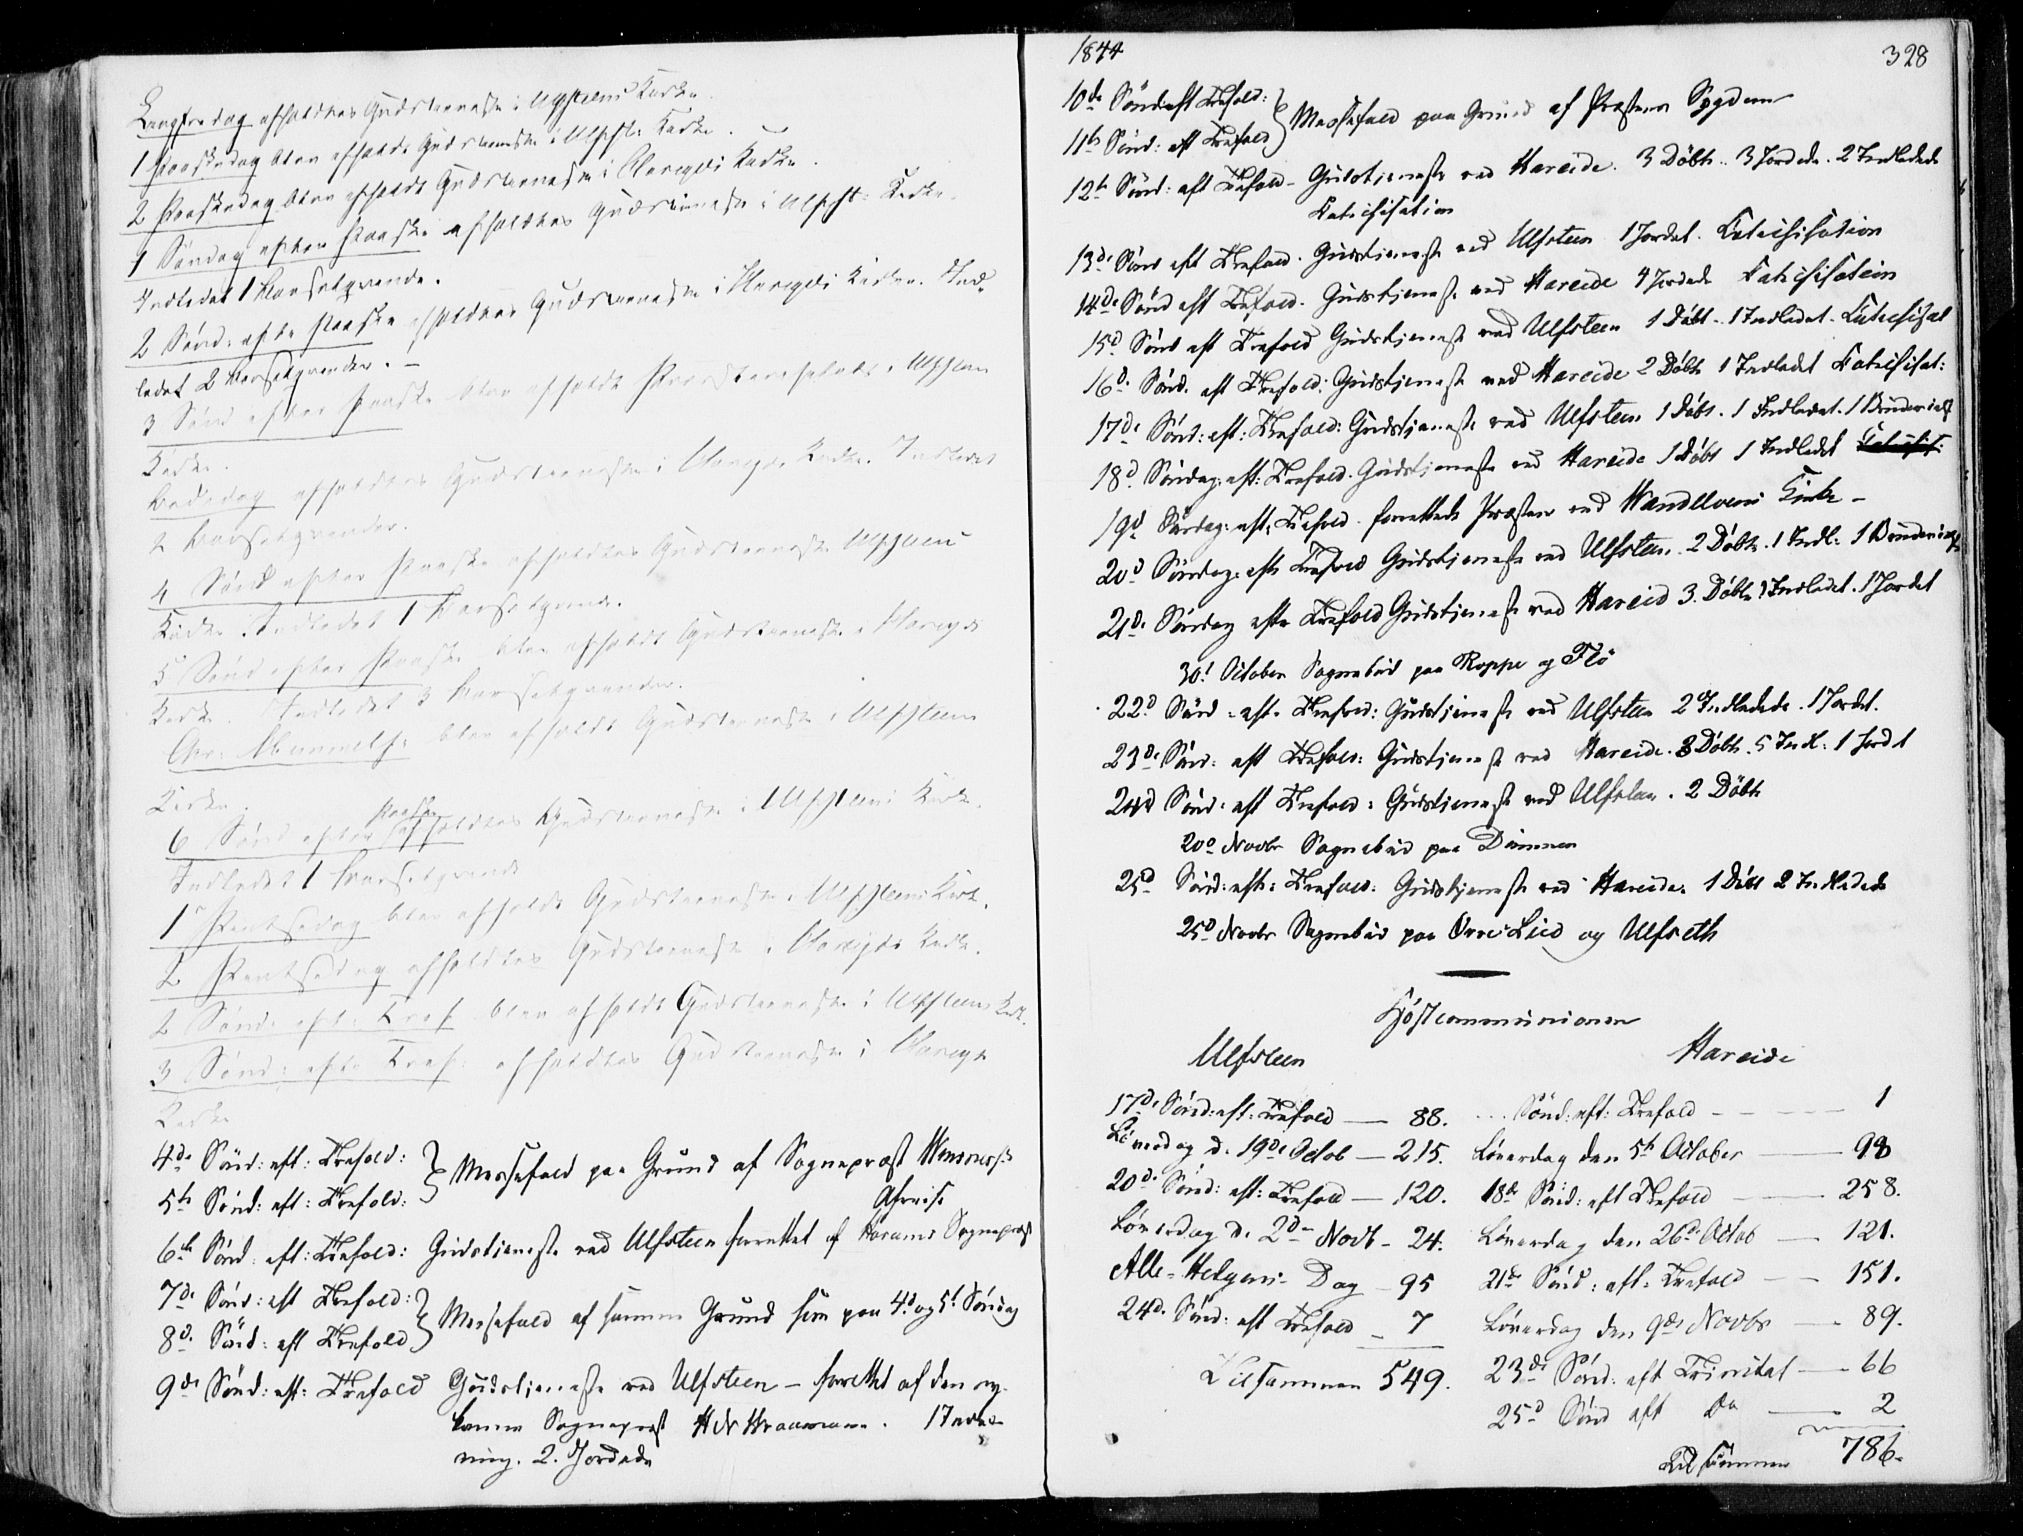 Langfredag afholdtes Gudstieneste i Ulfsteens Kirke.
1 Paaskedag blev afholdt Gudstieneste i Ulfst: Kirke.
2 Paaskedag blev afholdt Gudstieneste i Hareids Kirke.
1 Søndag efter Paaske afholdtes Gudstieneste i Ulfst: Kirke.
Indledet 1 Barselqvinde.
2 Sønd: efter Paaske afholdtes Gudstieneste i Hareids Kirke. Ind-
ledet 2 Barselqvinder. -
3 Sønd efter Paaske blev afholdt i Ulfsteen
Kirke.
Bededag afholdtes Gudstieneste i Hareids Kirke. Indledet
2 Barselqvinder.
4 Sønd efter Paaske afholdtes Gudstieneste Ulfsteens
Kirke. Indledet 1 Barselqvinde.
5 Sønd efter Paaske blev afholdt Gudstieneste i Hareids
Kirke. Indledet 3 Barselqvinder.
Chr: Himmelf: blev afholdt Gudstieneste i Ulfsteens
Kirke.
6 Sønd efter Paaske afholdtes Gudstieneste i Ulfsteens Kirke.
Indledet 1 Barselqvinde
1 Pintsedag blev afholdt Gudstieneste i Ulfsteens Kirk.
2 Pintsedag afholdtes Gudstieneste i Hareids Kirke.
2 Sønd: eft: Tref blev afholdt Gudstieneste i Ulfsteens Kirk.
3 Sønd: efte Tref: afholdtes Gudstieneste i Hareids
Kirke
4de Sönd: eft: Trefold: } Messefald paa Grund af Sognepræst
5te Sönd: eft: Trefold: Afreise
6te Sönd: eft: Trefold: Gudstieneste ved Ulfsteen forrettet af Harams Sognepræst
7de Sönd: eft Trefold: } Messefald af samme Grund som paa 4d og 5t Søndag
8d. Sönd: eft Trefold
9de Sönd: eft: Trefold Gudstjeneste ved Ulfsteen - forrettet af den ny
komne Sognepræst Hr 1 Indled-
ning. 2. Jordede
1844 328
10de Sönd: eft Trefold: } Messefald paa Grund af Præstens Sygdom
11te Sönd: eft Trefold
12te Sönd: eft Trefold - Gudstjeneste ved Hareide. 3 Döbte. 3 Jordede. 2 Indledede
Katechisation
13de Sönd eft Trefold. Gudstjeneste ved Ulfsteen 1 Jordet. Katechisation
14de Sönd eft Trefold. Gudstjeneste ved Hareide 4 Jordede Katechisation
15d. Sönd eft Trefold Gudstjeneste ved Ulfsteen 1 Döbt. 1 Indledet. Katechisat
16d. Sönd. eft Trefold: Gudstjeneste ved Hareide 2 Döbte 1 Indledet Katechisat:
17de Sönd: eft: Trefold: Gudstjeneste ved Ulfsteen 1 Döbt. 1 Indledet. 1 Brudevielse
18d. Söndag: eft: Trefold. Gudstjeneste ved Hareide 1 Döbt 1 Indledet
19d Söndag: eft: Trefold. forrettede Præsten ved Kirke -
20d Söndag: eft Trefold Gudstjeneste ved Ulfsteen. 2 Döbte. 1 Indl: 1 Brudevielse
21de Söndag efte Trefold Gudstjeneste ved Hareid 3. Döbte 1 Indledet. 1 Jordet
30t October Sognebud paa Roppe og Flö
22d Sönd: eft. Trefold: Gudstjeneste ved Ulfsteen 2 Indledede. 1 Jordet.
23de Sönd: eft Trefold: Gudstjeneste ved Hareide. 8 Döbte. 5 Indl: 1 Jord t
24d Sönd: eft Trefold: Gudstjeneste ved Ulfsteen. 2 Döbte
20d Novbr Sognebud paa Dimmen
25d Sönd: eft: Trefold: Gudstjeneste ved Hareide. 1 Döbt 2 Indledede
25d Novbr Sognebud paa Lied og Ulfseth
Höstcommunionen
Ulfsteen Hareide
17d. Sönd: eft: Trefold — 88. Sönd: eft: Trefold - - - 1
Löverdag d. 19de Octob — 215. Löverdag den 5te October — 98
20d. Sönd: eft: Trefold — 120. 18de Sönd: eft Trefold — 258.
Löverdag d. 2den Novb - 24. Löverdag den 26d Octob — 121.
Alle-Helgens-Dag - 95 21de Sönd: eft: Trefold — 151.
24d. Sönd: eft Trefold - 7 Löverdag den 9de Novbr — 89.
Tilsammen 549. 23de Sönd: eft Trinitat — 66
25d Sönd eft Do — 2
Tilsammen 786.